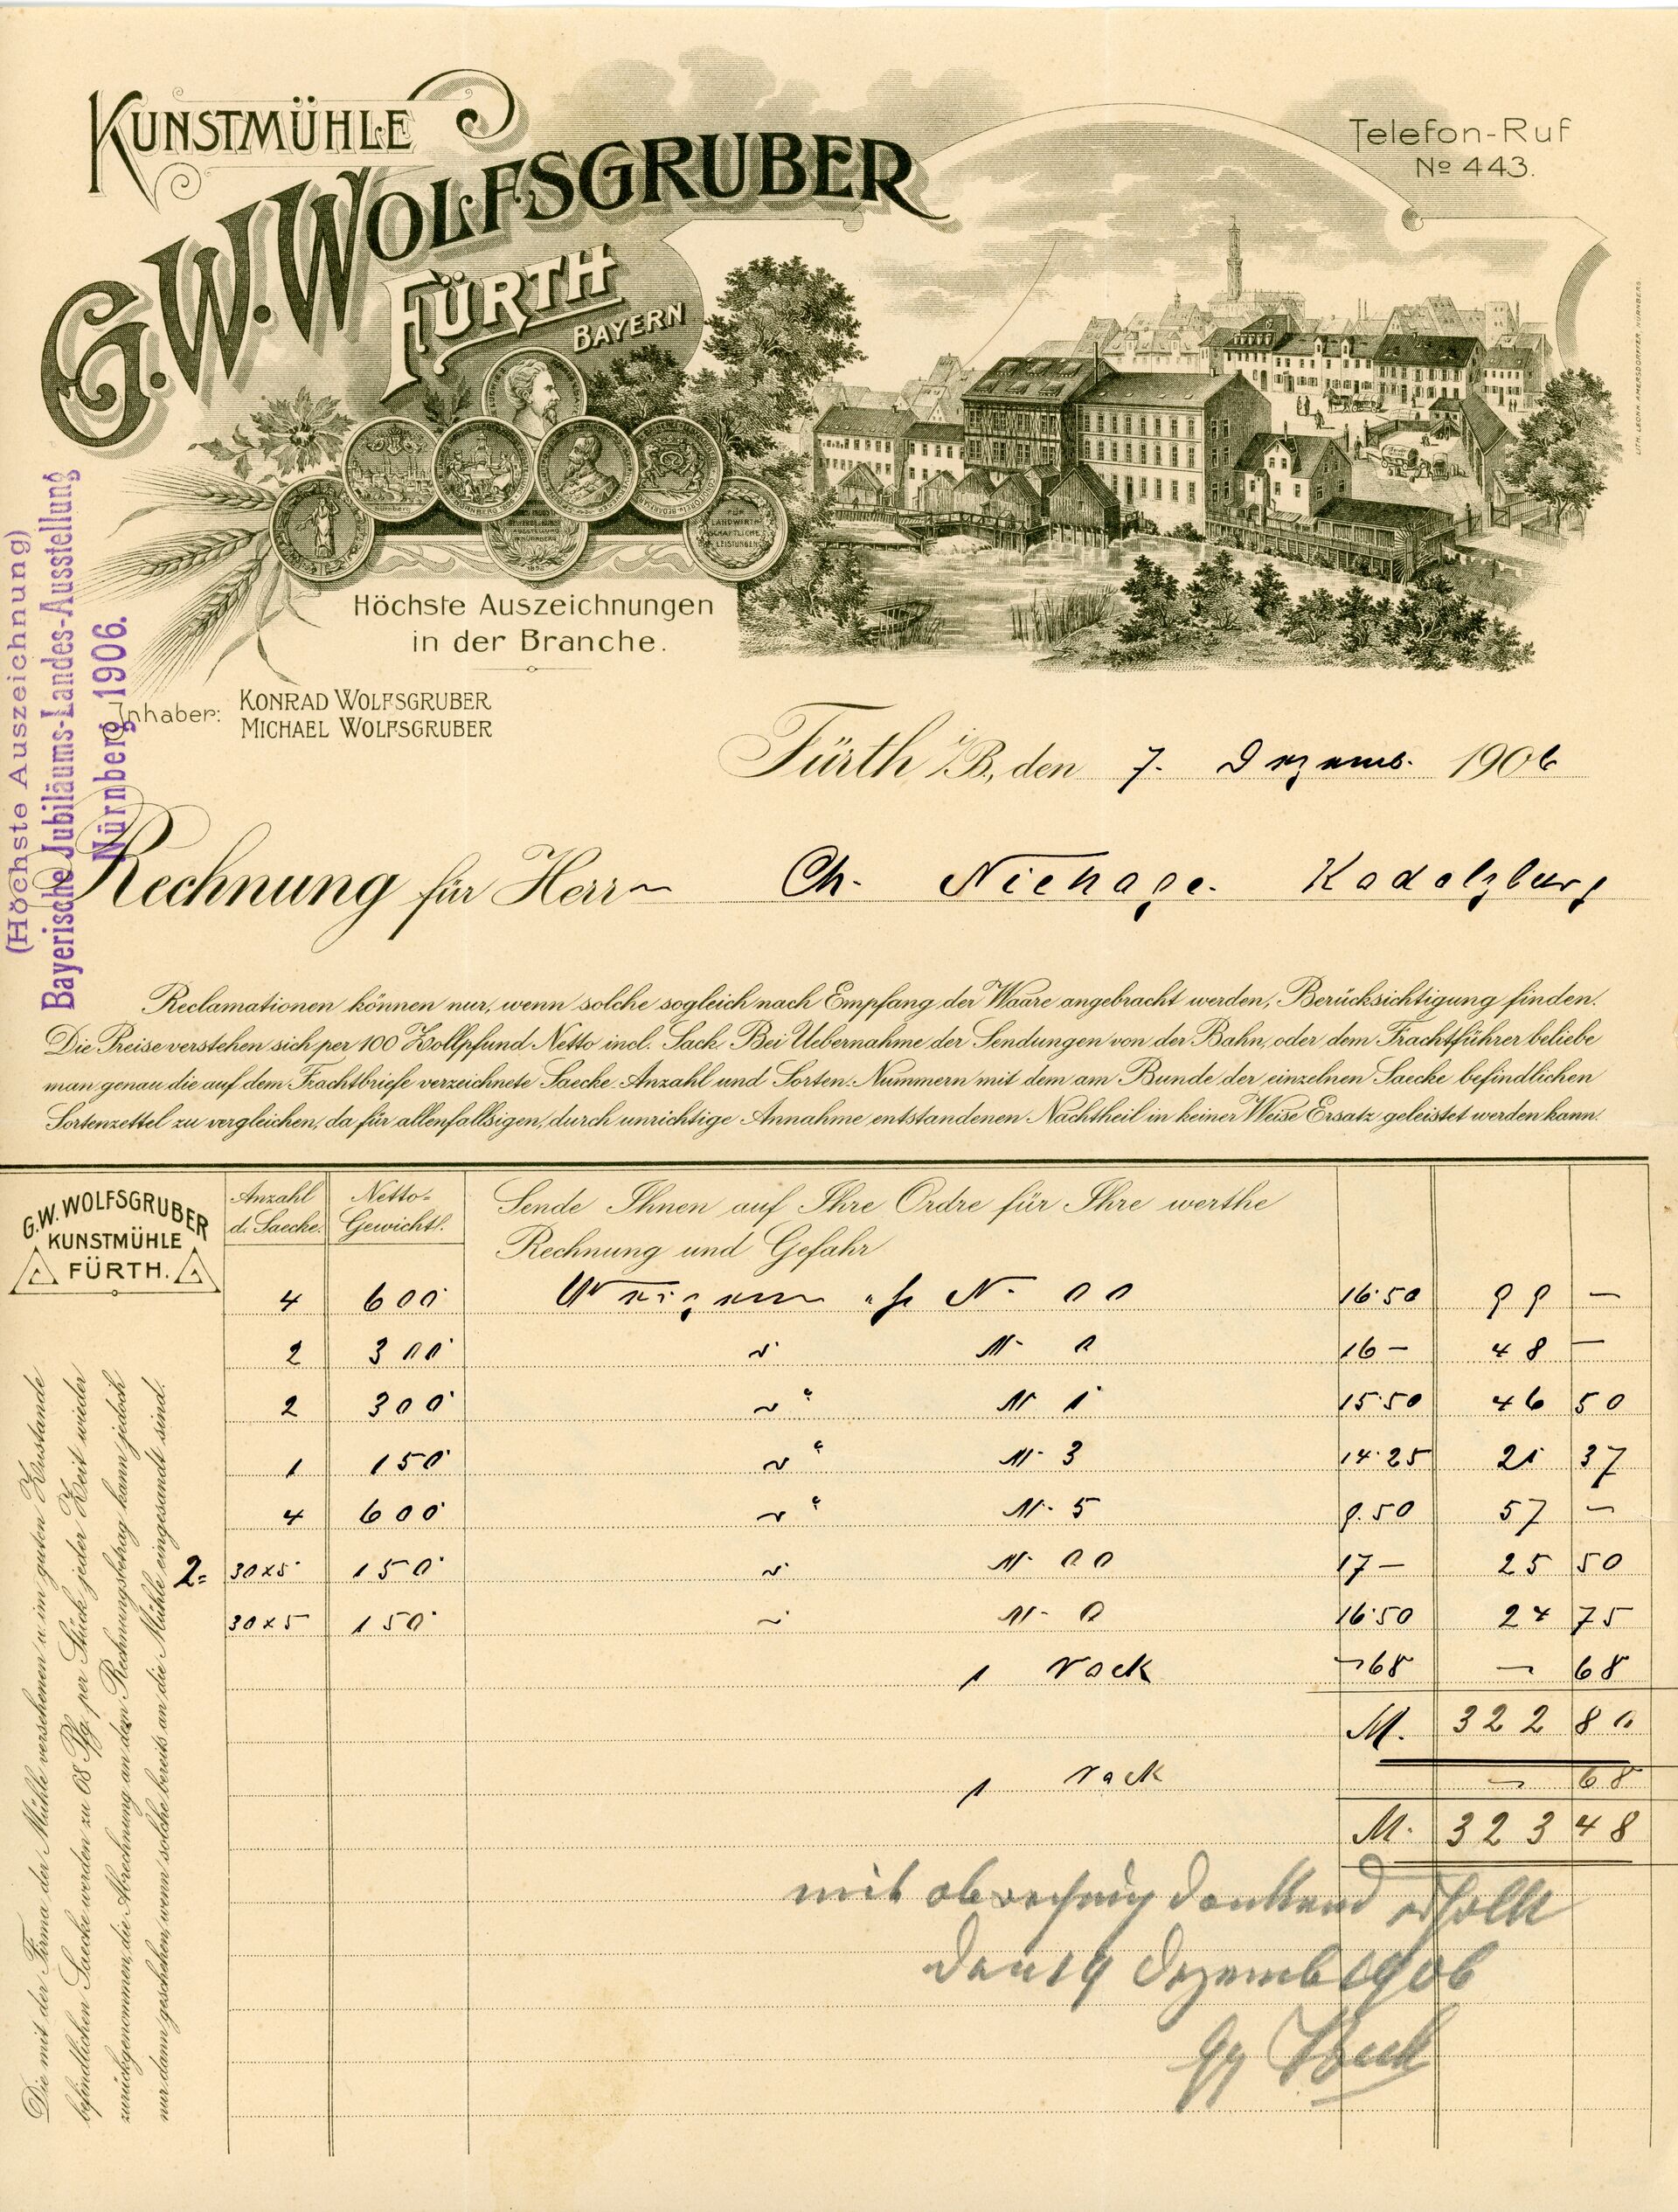 KUNSTMÜHLE
G.W. WOLFSGRUBER
FÜRTH
BAYERN
Telefon-Ruf
No 443.
LITH. LEONH. AMERSDORFFER NÜRNBERG
FÜR LANDWIRTSCHAFTLICHE LEISTUNGEN
Höchste Auszeichnungen
in der Branche.
Inhaber: KONRAD WOLFSGRUBER
MICHAEL WOLFSGRUBER
(Höchste Auszeichnung)
Bayerische Jubiläums-Landes-Ausstellung
Nürnberg 1906.
Fürth i/B., den 7. Dezemb. 1906
Rechnung für Herrn Ch. Kadolzburg
Reclamationen können nur, wenn solche sogleich nach Empfang der Waare angebracht werden, Berücksichtigung finden.
Die Preise verstehen sich per 100 Zollpfund Netto incl. Sack. Bei Uebernahme der Sendungen von der Bahn, oder dem Frachtführer beliebe
man genau die auf dem Frachtbriefe verzeichnete Saecke-Anzahl und Sorten-Nummern mit dem am Bunde der einzelnen Saecke befindlichen
Sortenzettel zu vergleichen, da für allenfallsigen, durch unrichtige Annahme entstandenen Nachtheil in keiner Weise Ersatz geleistet werden kann.
G.W. WOLFSGRUBER
KUNSTMÜHLE
FÜRTH.
Anzahl d. Saecke. Netto-Gewicht. Sende Ihnen auf Ihre Ordre für Ihre werthe
Rechnung und Gefahr
4 600 Weizen N. 00 16.50 99 —
2 300 " N. 0 16 — 48 —
2 300 " N 1 15.50 46 50
1 150 " N. 3 14.25 21 37
4 600 " N. 5 9.50 57 —
2= 30x5 150 " N. 00 17 — 25 50
30x5 150 " N. 0 16.50 24 75
1 Sack — 68 — 68
M. 322 80
1 Sack — 68
M. 323 48
mit dankend erhalten
den 19 Dezemb 1906
Die mit der Firma der Mühle versehenen u. im guten Zustande
befindlichen Saecke werden zu 68 Pfg. per Stück jeder Zeit wieder
zurückgenommen, die Abrechnung an dem Rechnungsbetrag kann jedoch
nur dann geschehen, wenn solche bereits an die Mühle eingesandt sind.